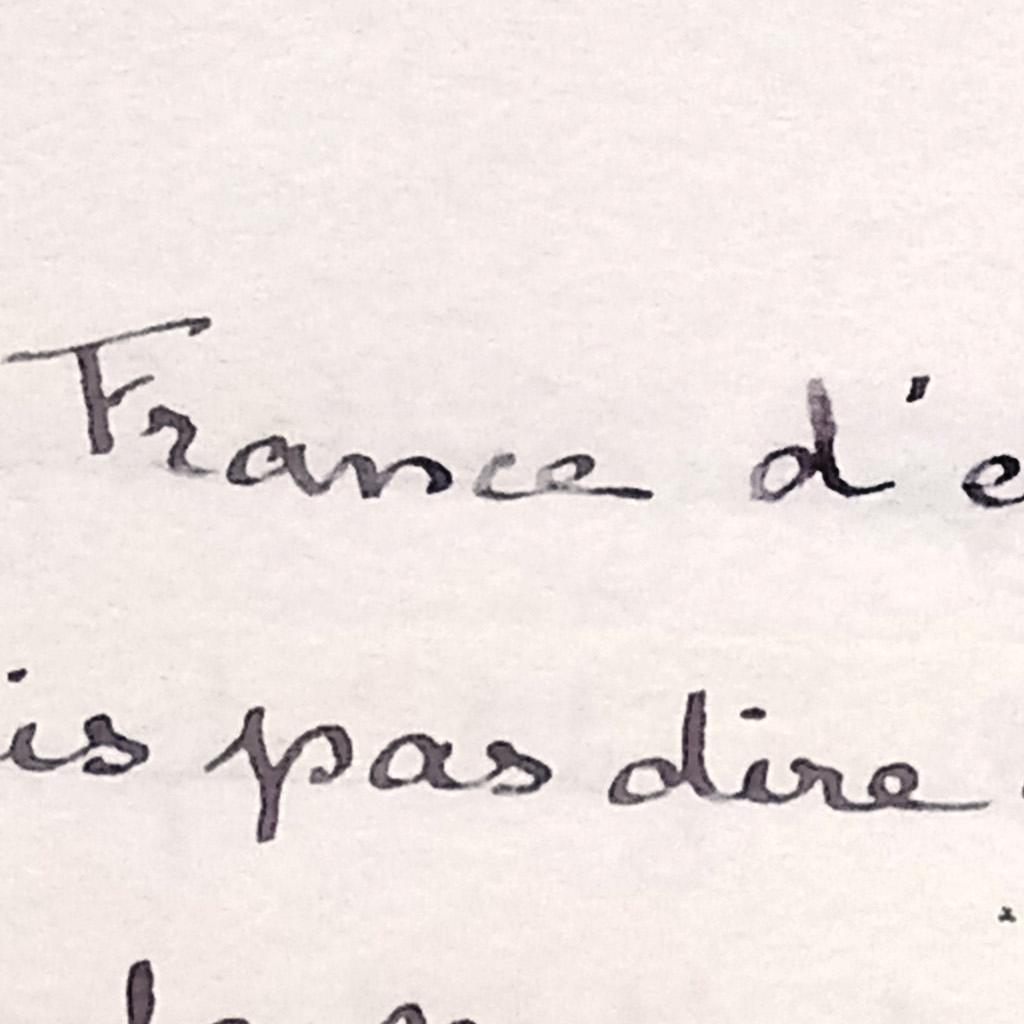 France d'e
is pas dire